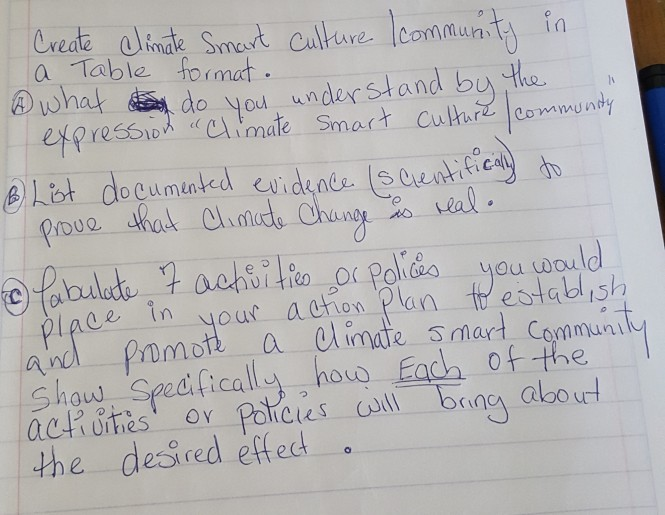 Create Climate Smart Culture / community in
a Table format.
Ⓐ What do you understand by the
expression "Climate Smart Culture / community"
Ⓑ List documented evidence (scientifically) to
prove that Climate Change is real.
Ⓒ Tabulate 7 activities or polices you would
place in your action plan to establish
and promote a climate smart community
show specifically how Each of the
activities or policies will bring about
the desired effect.